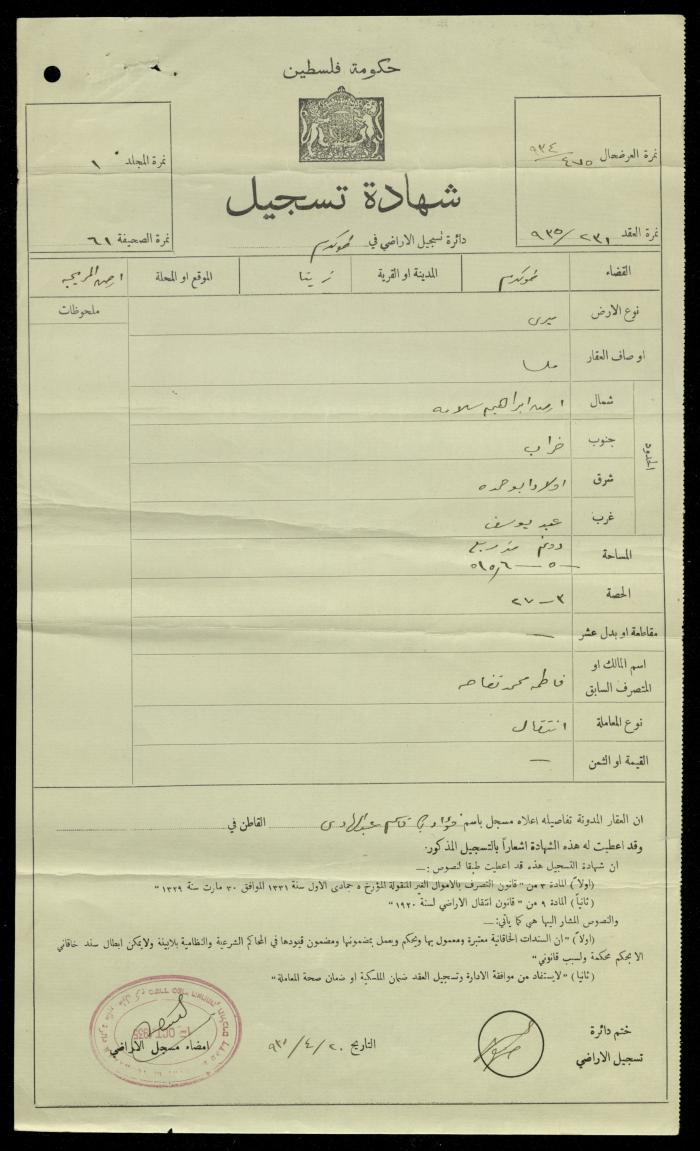 حكومة فلسطين
نمرة العرضحال ٩٣٤/٤٧٥
نمرة المجلد ١
شهادة تسجيل
نمرة العقد ٩٣٥/٢٣١
نمرة الصحيفة ٦١
دائرة تسجيل الاراضي في
القضاء
المدينة او القرية زيتا
الموقع او المحلة
نوع الارض ميرى
ملحوظات
اوصاف العقار ملسا
الحدود
شمال ارض ابراهيم سلامه
جنوب خراب
شرق اولاد ابو حمده
غرب عبد يوسف
المساحة دونم
الحصة ٣ــ٢٧
مقاطعة او بدل عشر —
اسم المالك او
المتصرف السابق فاطمه محمد تفاحه
نوع المعاملة انتقال
القيمة او الثمن —
ان العقار المدونة تفاصيله اعلاه مسجل باسم فؤاد قاسم عبد الهادى القاطن في
وقد اعطيت له هذه الشهادة اشعاراً بالتسجيل المذكور.
ان شهادة التسجيل هذه قد اعطيت طبقا لنصوص :—
(اولا) المادة ٣ من "قانون التصرف بالاموال الغير المنقولة المؤرخ ٥ جمادى الاول سنة ١٣٣١ الموافق ٣٠ مارت سنة ١٣٢٩"
(ثانياً) المادة ٩ من "قانون انتقال الاراضي لسنة ١٩٢٠"
والنصوص المشار اليها هي كما يأتي:—
(اولا) "ان السندات الخاقانية معتبرة ومعمول بها ويحكم ويعمل بمضمونها ومضمون قيودها في المحاكم الشرعية والنظامية بلابينة ولا يمكن ابطال سند خاقاني
الا بحكم محكمة ولسبب قانوني"
(ثانيا) "لايستفاد من موافقة الادارة وتسجيل العقد ضمان الملكية او ضمان صحة المعاملة"
ختم دائرة
تسجيل الاراضي
التاريخ
امضاء مسجل الاراضي
OCT 1935